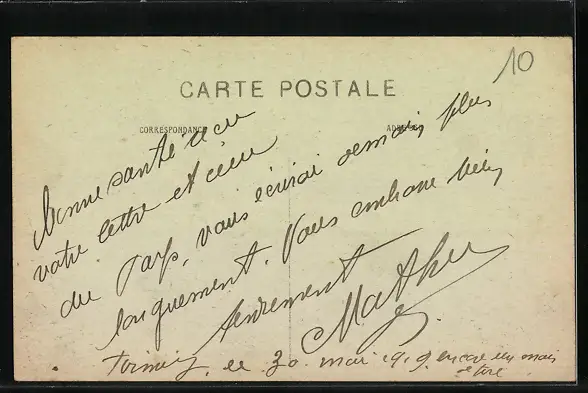 10
CARTE POSTALE
CORRESPONDANCE
ADRESSE
bonne santé reçu
votre lettre et celle
du Part, vous écrirai demain plus
longuement. Vous embrasse bien
tendrement
Mathieu
le 30 mai 1919 encore un mois